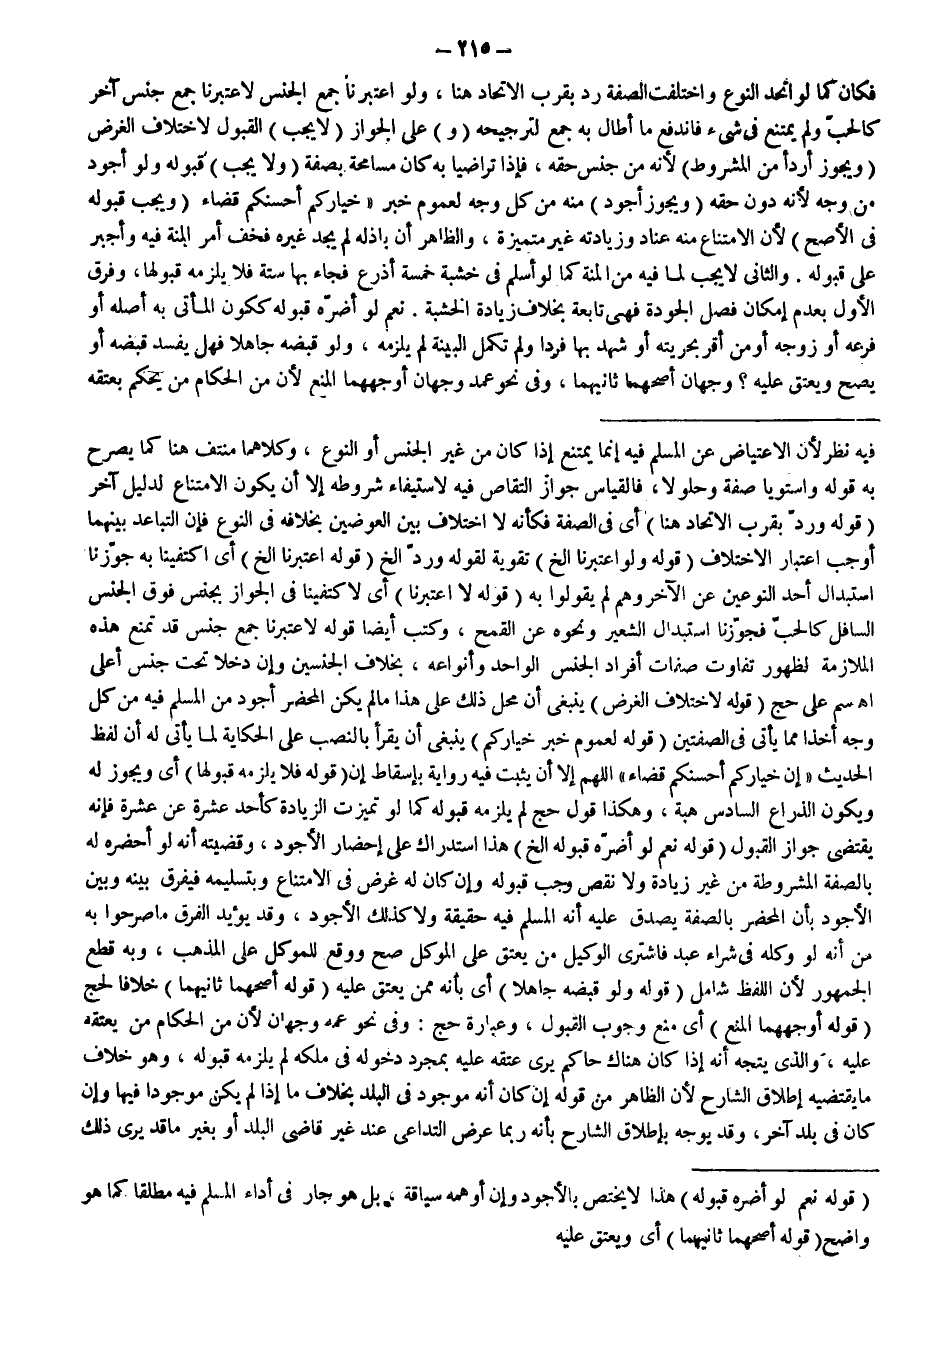 – ٢١٥ –
فكان كما لو اتحد النوع واختلفت الصفة رد بقرب الاتحاد هنا ، ولو اعتبرنا جمع الجنس لاعتبرنا جمع جنس آخر
كالحبّ ولم يمتنع فى شىء فاندفع ما أطال به جمع لترجيحه ( و ) على الجواز ( لايجب ) القبول لاختلاف الغرض
( ويجوز أردأ من المشروط ) لأنه من جنس حقه ، فإذا تراضيا به كان مسامحة بصفة ( ولا يجب ) قبوله ولو أجود
من وجه لأنه دون حقه ( ويجوز أجود ) منه من كل وجه لعموم خبر « خياركم أحسنكم قضاء ( ويجب قبوله
فى الأصح ) لأن الامتناع منه عناد وزيادته غير متميزة ، والظاهر أن باذله لم يجد غيره فخف أمر المنة فيه وأجبر
على قبوله . والثانى لايجب لمـا فيه من المنة كما لو أسلم فى خشبة خمسة أذرع فجاء بها ستة فلا يلزمه قبولها ، وفرق
الأول بعدم إمكان فصل الجودة فهى تابعة بخلاف زيادة الخشبة . نعم لو أضرّه قبوله ككون المـأتى به أصله أو
فرعه أو زوجه أو من أقر بحريته أو شهد بها فردا ولم تكمل البينة لم يلزمه ، ولو قبضه جاهلا فهل يفسد قبضه أو
يصح ويعتق عليه ؟ وجهان أصحهما ثانيهما ، وفى نحو عمد وجهان أوجههما المنع لأن من الحكام من يحكم بعتقه
فيه نظر لأن الاعتياض عن المسلم فيه إنما يمتنع إذا كان من غير الجنس أو النوع ، وكلاهما منتف هنا كما يصرح
به قوله واستويا صفة وحلولا ، فالقياس جواز التقاص فيه لاستيفاء شروطه إلا أن يكون الامتناع لدليل آخر
( قوله وردّ بقرب الاتحاد هنا ) أى فى الصفة فكأنه لا اختلاف بين العوضين بخلافه فى النوع فإن التباعد بينهما
أوجب اعتبار الاختلاف ( قوله ولو اعتبرنا الخ ) تقوية لقوله وردّ الخ ( قوله اعتبرنا الخ ) أى اكتفينا به جوّزنا
استبدال أحد النوعين عن الآخر وهم لم يقولوا به ( قوله لا اعتبرنا ) أى لاكتفينا فى الجواز بجنس فوق الجنس
السافل كالحبّ فجوّزنا استبدال الشعير ونحوه عن القمح ، وكتب أيضا قوله لاعتبرنا جمع جنس قد تمنع هذه
الملازمة لظهور تفاوت صفات أفراد الجنس الواحد وأنواعه ، بخلاف الجنسين وإن دخلا تحت جنس أعلى
اه سم على حج ( قوله لاختلاف الغرض ) ينبغى أن محل ذلك على هذا مالم يكن المحضر أجود من المسلم فيه من كل
وجه أخذا مما يأتى فى الصفتين ( قوله لعموم خبر خياركم ) ينبغى أن يقرأ بالنصب على الحكاية لمـا يأتى له أن لفظ
الحديث « إن خياركم أحسنكم قضاء » اللهم إلا أن يثبت فيه رواية بإسقاط إن ( قوله فلا يلزمه قبولها ) أى ويجوز له
ويكون الذراع السادس هبة ، وهكذا قول حج لم يلزمه قبوله كما لو تميزت الزيادة كأحد عشرة عن عشرة فإنه
يقتضى جواز القبول ( قوله نعم لو أضرّه قبوله الخ ) هذا استدراك على إحضار الأجود ، وقضيته أنه لو أحضره له
بالصفة المشروطة من غير زيادة ولا نقص وجب قبوله وإن كان له غرض فى الامتناع وبتسليمه فيفرق بينه وبين
الأجود بأن المحضر بالصفة يصدق عليه أنه المسلم فيه حقيقة ولا كذلك الأجود ، وقد يؤيد الفرق ماصرحوا به
من أنه لو وكله فى شراء عبد فاشترى الوكيل من يعتق على الموكل صح ووقع للموكل على المذهب ، وبه قطع
الجمهور لأن اللفظ شامل ( قوله ولو قبضه جاهلا ) أى بأنه ممن يعتق عليه ( قوله أصحهما ثانيهما ) خلافا لحج
( قوله أوجههما المنع ) أى منع وجوب القبول ، وعبارة حج : وفى نحو عمه وجهان لأن من الحكام من يعتقه
عليه ، والذى يتجه أنه إذا كان هناك حاكم يرى عتقه عليه بمجرد دخوله فى ملكه لم يلزمه قبوله ، وهو خلاف
مايقتضيه إطلاق الشارح لأن الظاهر من قوله إن كان أنه موجود فى البلد بخلاف ما إذا لم يكن موجودا فيها وإن
كان فى بلد آخر ، وقد يوجه بإطلاق الشارح بأنه ربما عرض التداعى عند غير قاضى البلد أو بغير ماقد يرى ذلك
( قوله نعم لو أضره قبوله ) هذا لايختص بالأجود وإن أوهمه سياقة ، بل هو جار فى أداء المسلم فيه مطلقا كما هو
واضح ( قوله أصحهما ثانيهما ) أى ويعتق عليه